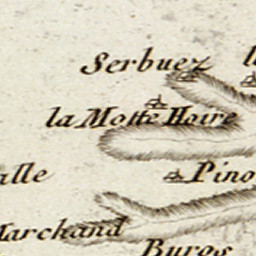 Serbuez
la Motte Hoire
alle
Pino
Marchand
Buros